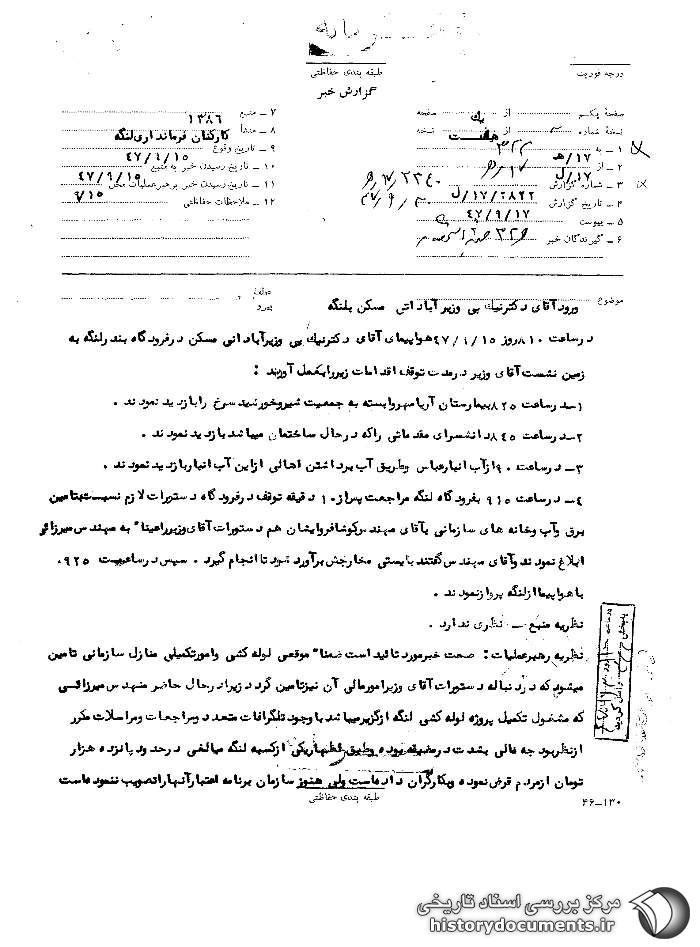 طبقه بندی حفاظتی
درجه فوریت
گزارش خبر
صفحه یکم از یک صفحه
نسخهٔ شماره از هفت نسخه
۱ – به ۳۲۲
۲ – از ۱۷/ﻫ
۳ – شماره گزارش ۱۷/ل
۴ – تاریخ گزارش ۲۸۲۲/۱۷/ل
۵ – پیوست ۴۷/۹/۱۷
۶ – گیرندگان خبر
۷ – منبع ۱۳۸۶
۸ – منشأ کارکنان فرمانداری لنگه
۹ – تاریخ وقوع
۱۰ – تاریخ رسیدن خبر به منبع ۴۷/۹/۱۵
۱۱ – تاریخ رسیدن خبر برهبر عملیات محل ۴۷/۹/۱۵
۱۲ – ملاحظات حفاظتی ۹/۱۵
موضوع ورود آقای دکتر نیک پی وزیر آبادانی مسکن بلنگه
عطف
پیرو
در ساعت ۸۱۰ روز ۴۷/۹/۱۵ هواپیمای آقای دکتر نیک پی وزیر آبادانی مسکن در فرودگاه بندرلنگه به
زمین نشست آقای وزیر در مدت توقف اقدامات زیر را بعمل آوردند :
۱– در ساعت ۸۲۵ بیمارستان آریامهر وابسته به جمعیت شیروخورشید سرخ را بازدید نمودند .
۲– در ساعت ۸۴۵ دانشسرای مقدماتی را که در حال ساختمان میباشد بازدید نمودند .
۳– در ساعت ۹۰ از آب انبار عباس وطریق آب برداشتن اهالی از این آب انبار بازدید نمودند .
۴– در ساعت ۹۱۵ بفرودگاه لنگه مراجعت پس از ۱۰ دقیقه توقف در فرودگاه دستورات لازم نسبت بتامین
برق وآب وخانه های سازمانی بآقای مهندس کوشافر وایشان هم دستورات آقای وزیر را عینا" به مهندس میرزائی
ابلاغ نمودند وآقای مهندس گفتند بایستی مخارجش برآورد شود تا انجام گیرد . سپس در ساعت ۰۹۲۵
با هواپیما از لنگه پرواز نمودند .
نظریه منبع – نظری ندارد .
نظریه رهبر عملیات : صحت خبر مورد تائید است ضمنا" موقعی لوله کشی وامور تکمیلی منازل سازمانی تامین
میشود که در دنباله دستورات آقای وزیر امور مالی آن نیز تامین گردد زیرا در حال حاضر مهندس میرزائی
که مشغول تکمیل پروژه لوله کشی لنگه ازگزیر میباشد با وجود تلگرافات متعدد ومراجعات ومراسلات مکرر
از نظر بودجه مالی بشدت در مضیقه بوده وطبق اظهار یکی از کسبه لنگه مبالغی در حدود پانزده هزار
تومان از مردم قرض نموده وبکارگران داده است ولی هنوز سازمان برنامه اعتبار آنها را تصویب ننموده است
طبقه بندی حفاظتی
۴۶–۱۳۰
مرکز بررسی اسناد تاریخی
historydocuments.ir